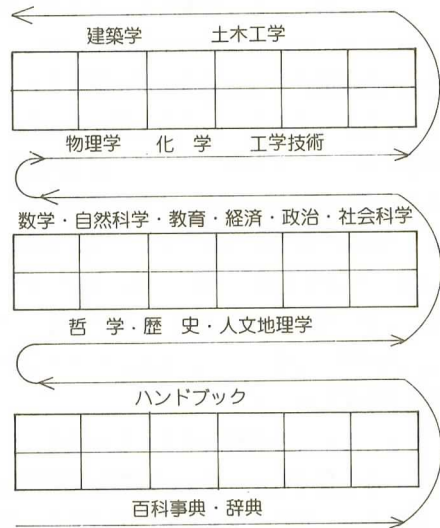 建築学　土木工学
物理学　化　学　工学技術
数学・自然科学・教育・経済・政治・社会科学
哲　学・歴　史・人文地理学
ハンドブック
百科事典・辞典